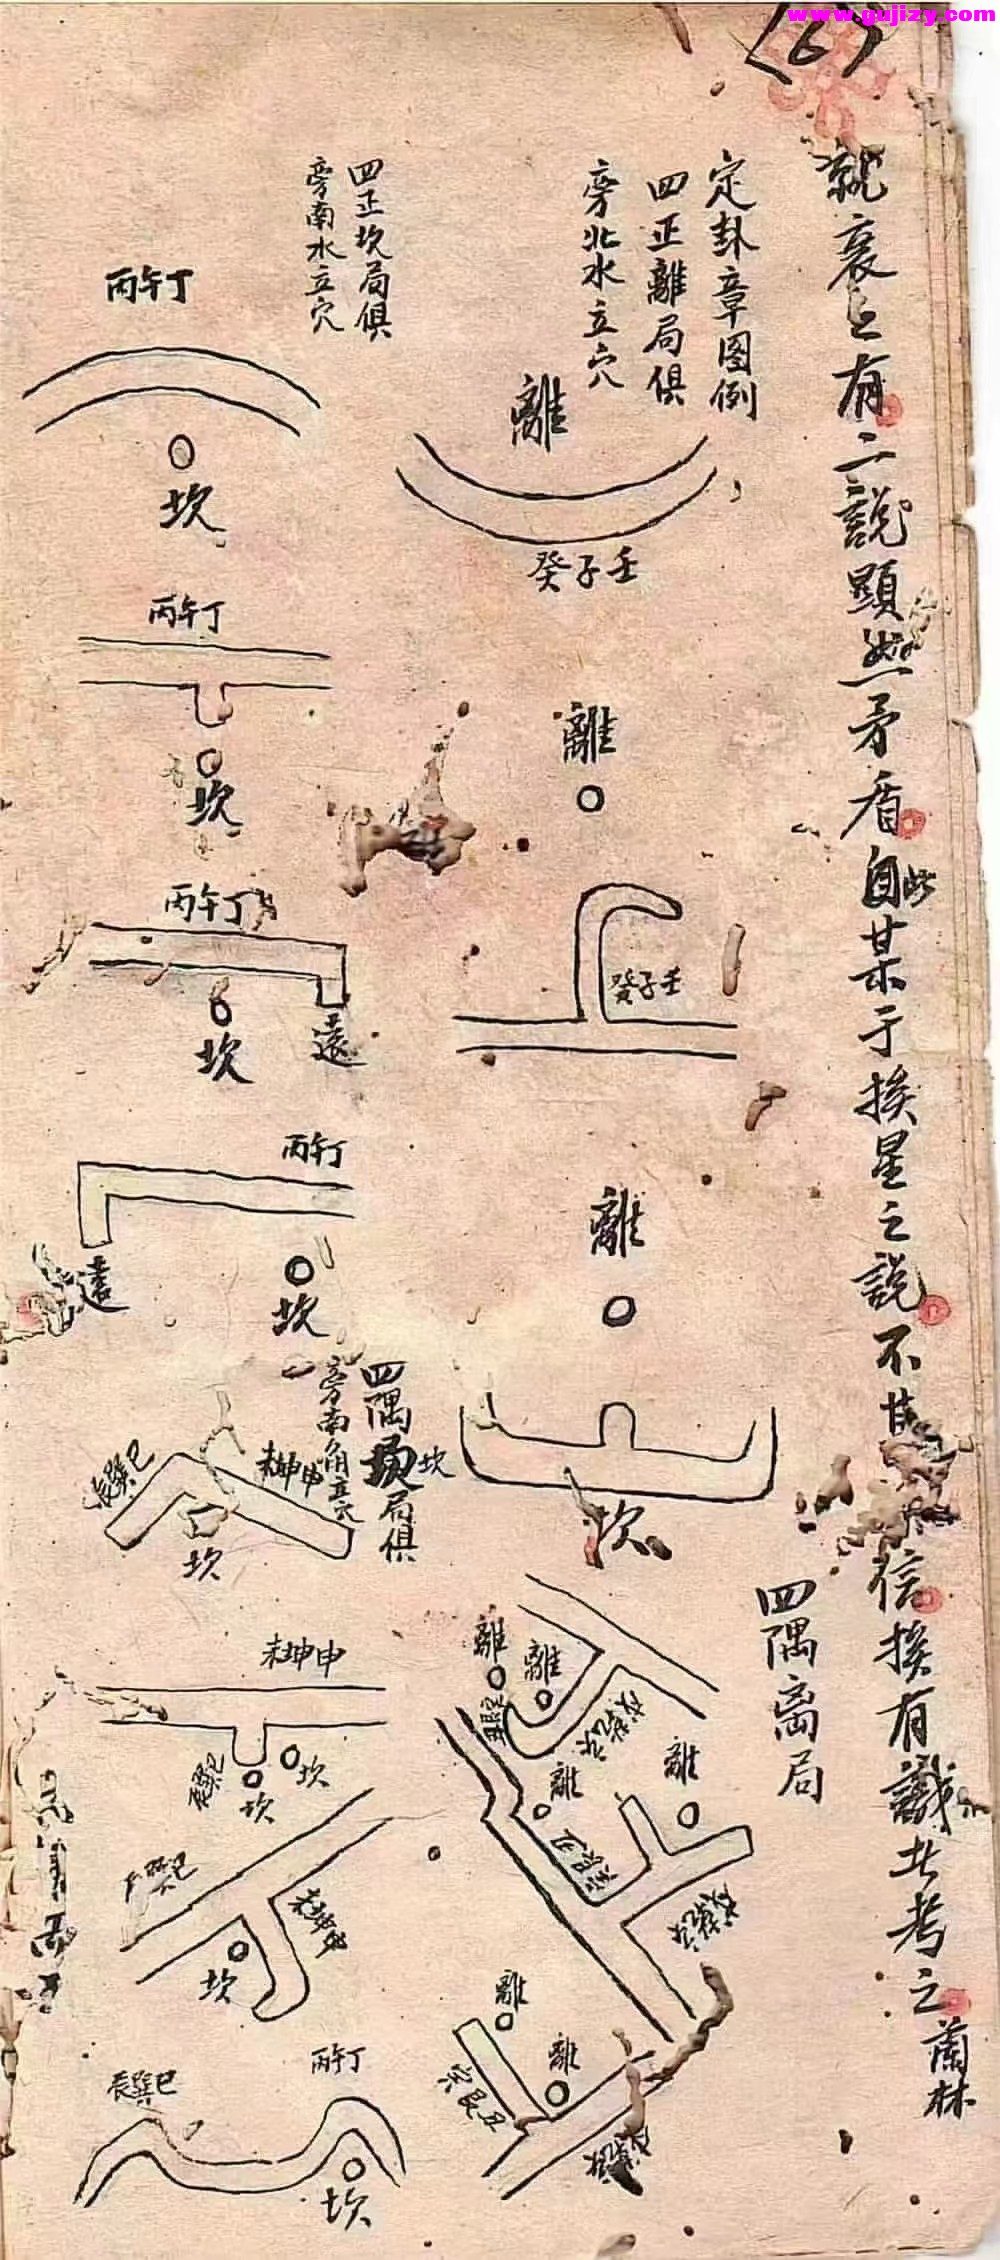 www.gujizy.com
(6)
就裒之有二說顯然矛盾自此某于挨星之說不甘信挨有識者考之蘭林
定卦章图例
四正離局俱
旁北水立穴
離
癸子壬
離
癸子壬
離
坎
四隅离局
離
離
丑艮寅
戌乾亥
離
離
寅艮丑
戌乾亥
離
離
寅艮丑
戌乾亥
四正坎局俱
旁南水立穴
丙午丁
坎
丙午丁
坎
丙午丁
坎
遠
丙午丁
坎
遠
四隅坎局俱
旁南角立穴
辰巽巳
未坤申
坎
未坤申
辰巽巳
坎
坎
辰巽巳
未坤申
坎
辰巽巳
丙午丁
坎